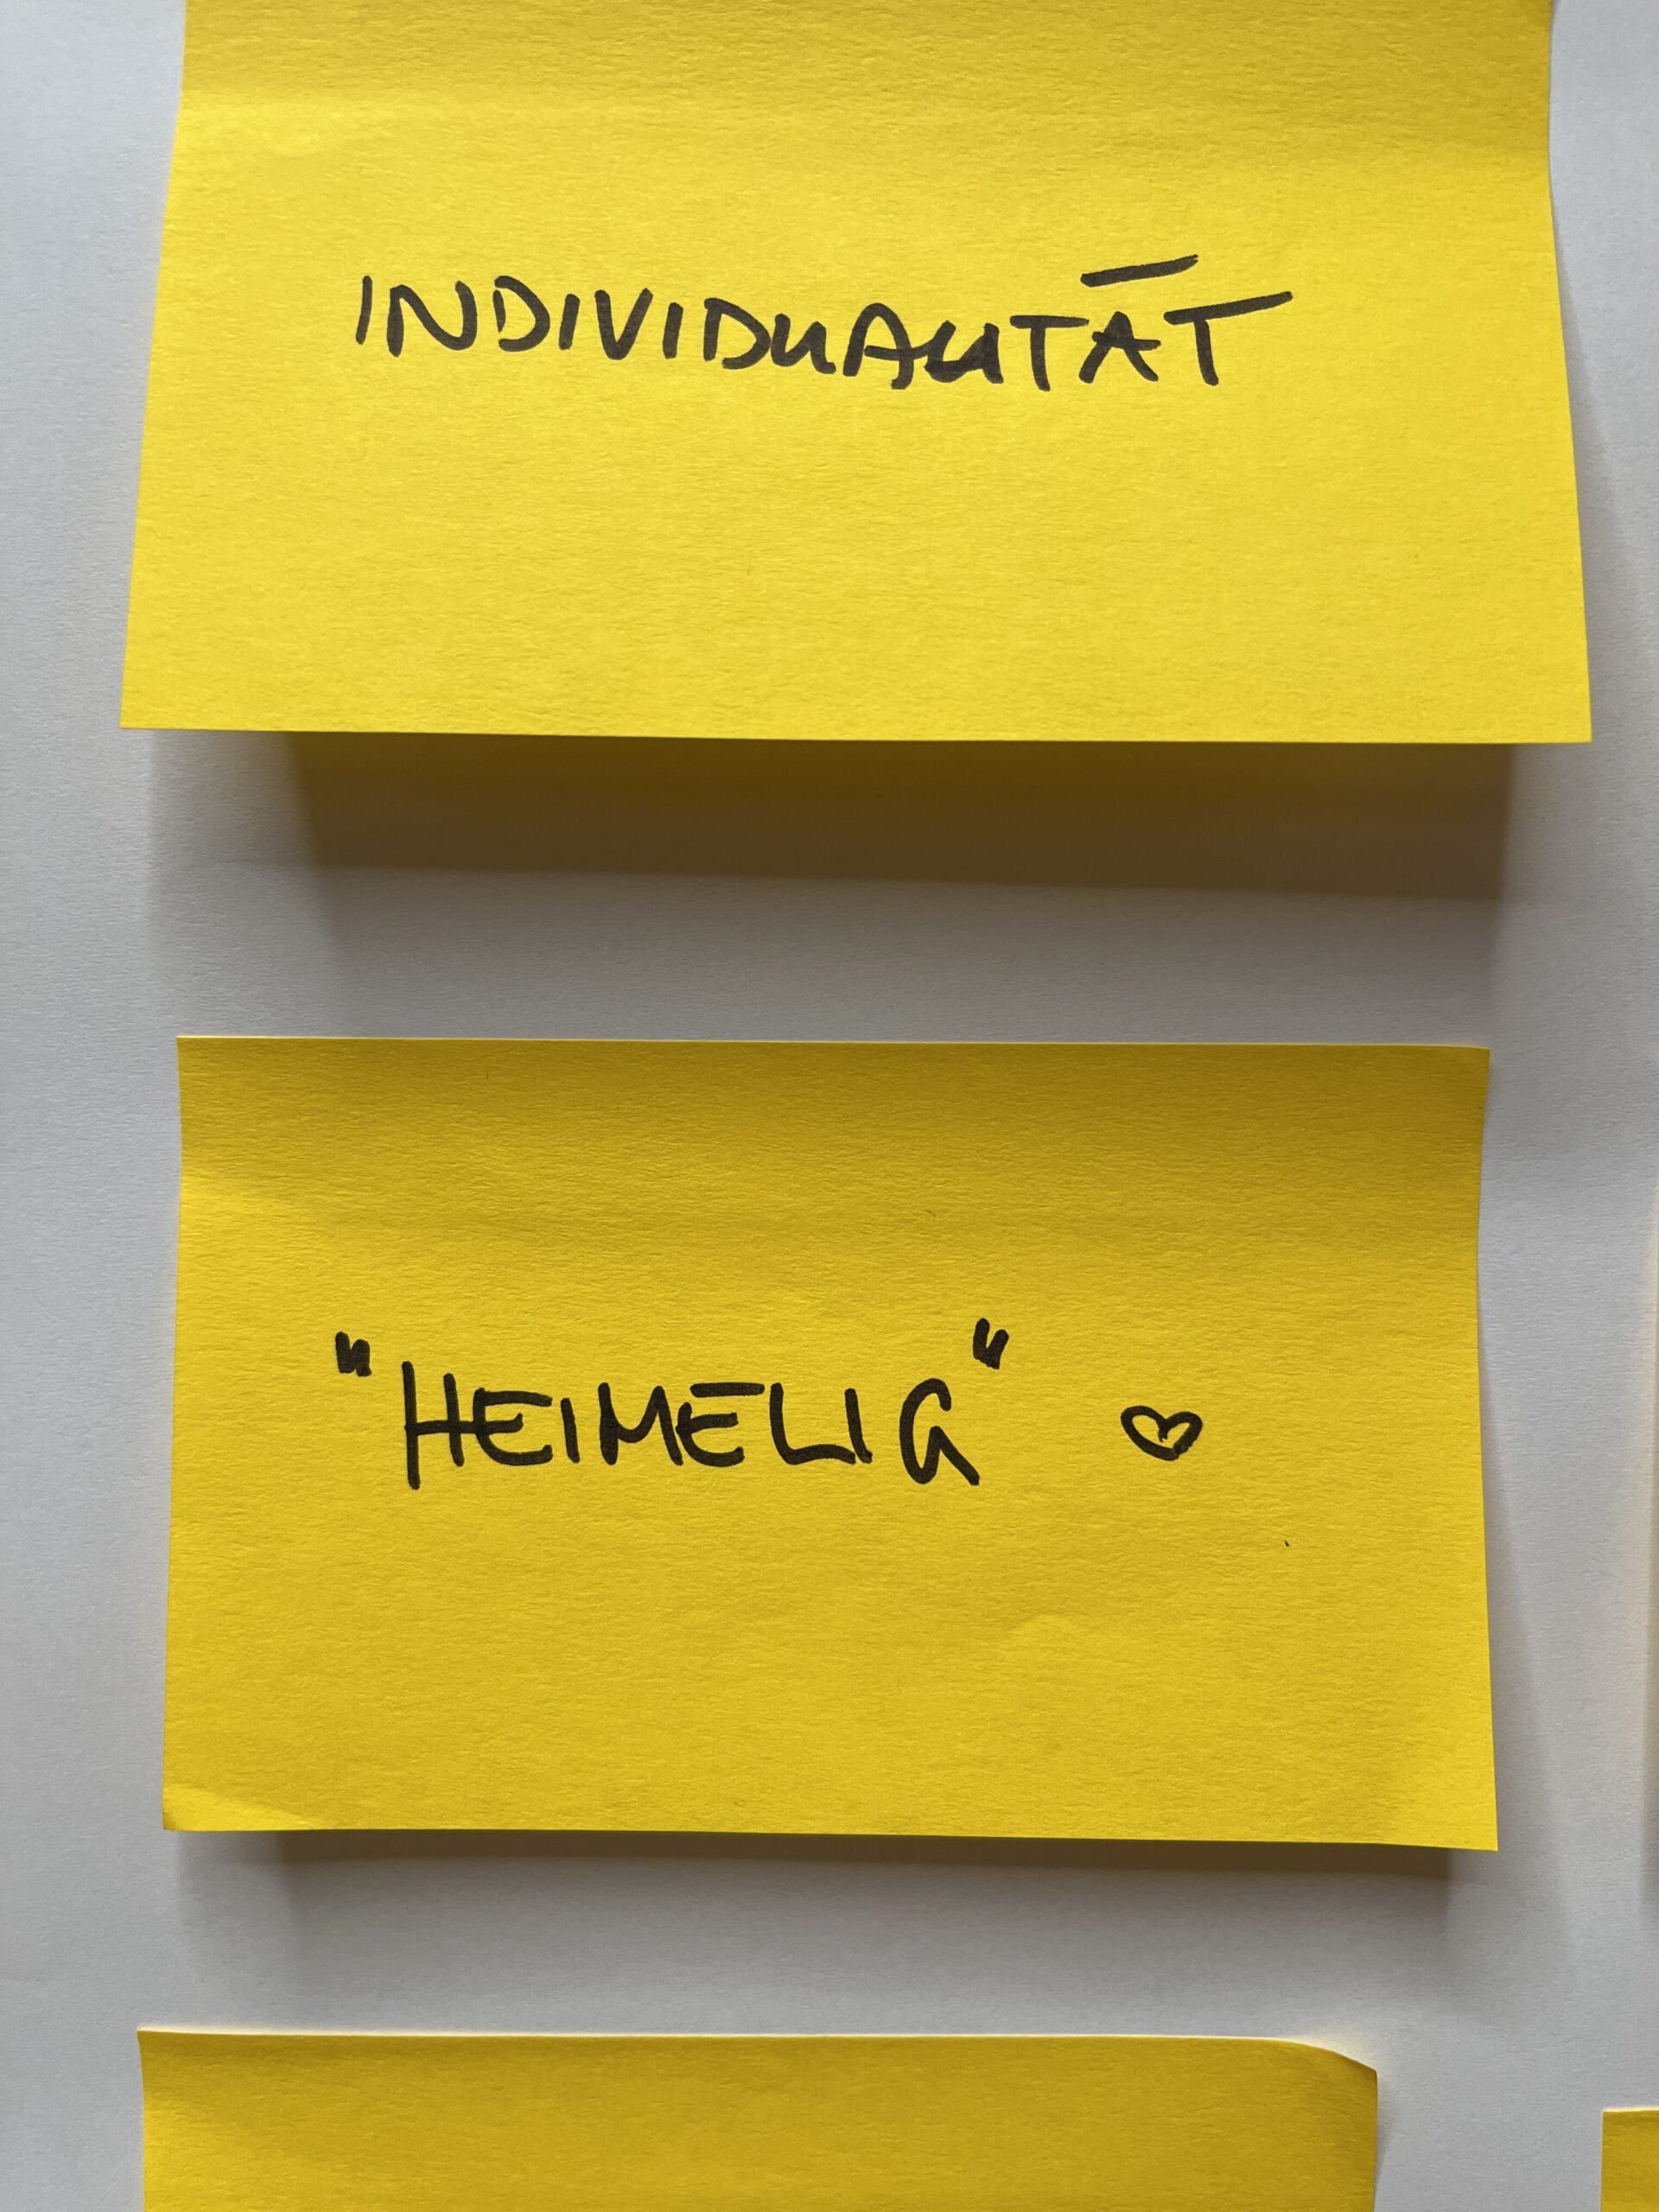 INDIVIDUALITÄT
"HEIMELIG" ♡